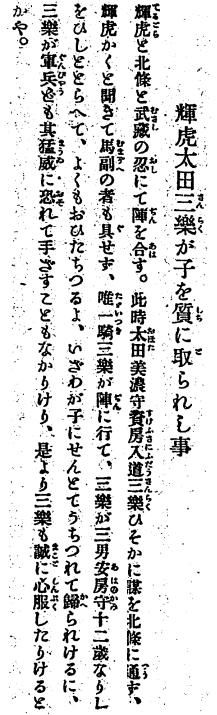 輝虎太田三樂が子を質に取られし事
輝虎と北條と武藏の忍にて陣を合す。此時太田美濃守資房入道三樂ひそかに謀を北條に通ず、
輝虎かくと聞きて馬副の者も具せず、唯一騎三樂が陣に行て、三樂が三男安房守十二歲なりし
をひしととらへて、よくもおひたちつるよ、いざわが子にせんとてうちつれて歸られけるに、
三樂が軍兵ども其猛威に恐れて手ざすこともなかりけり、是より三樂も誠に心服したりけると
かや。